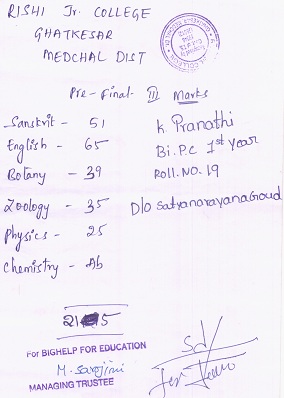 RISHI Jr. COLLEGE
GHATKESAR
MEDCHAL DIST
Pre-Final- III Marks
Sanskrit - 51
English - 65
Botany - 39
Zoology - 35
Physics - 25
Chemistry - Ab
K Pranathi
Bi.P.C 1st year
ROLL.NO. 19
D/o Satyanarayana Goud
215
For BIGHELP FOR EDUCATION
M. Sarojini
MANAGING TRUSTEE
Sd/